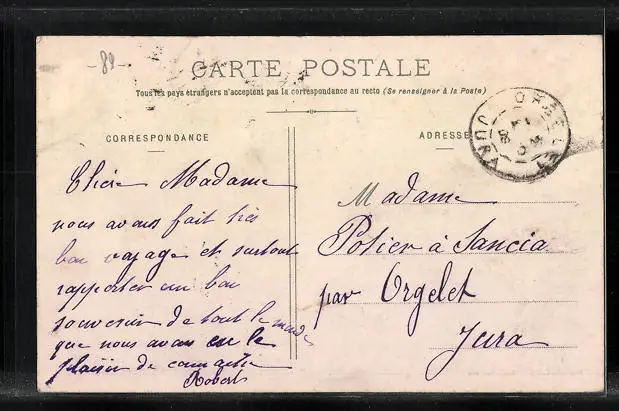 -89-
CARTE POSTALE
Tous les pays étrangers n'acceptent pas la correspondance au recto (Se renseigner à la Poste)
CORRESPONDANCE
ADRESSE
ORGELET
JURA
Chère Madame
nous avons fait très
bon voyage et surtout
rapporter un bon
souvenir de tout le monde
que nous avons eu le
plaisir de connaitre
Robert
Madame
Potier à Sancia
par Orgelet
Jura